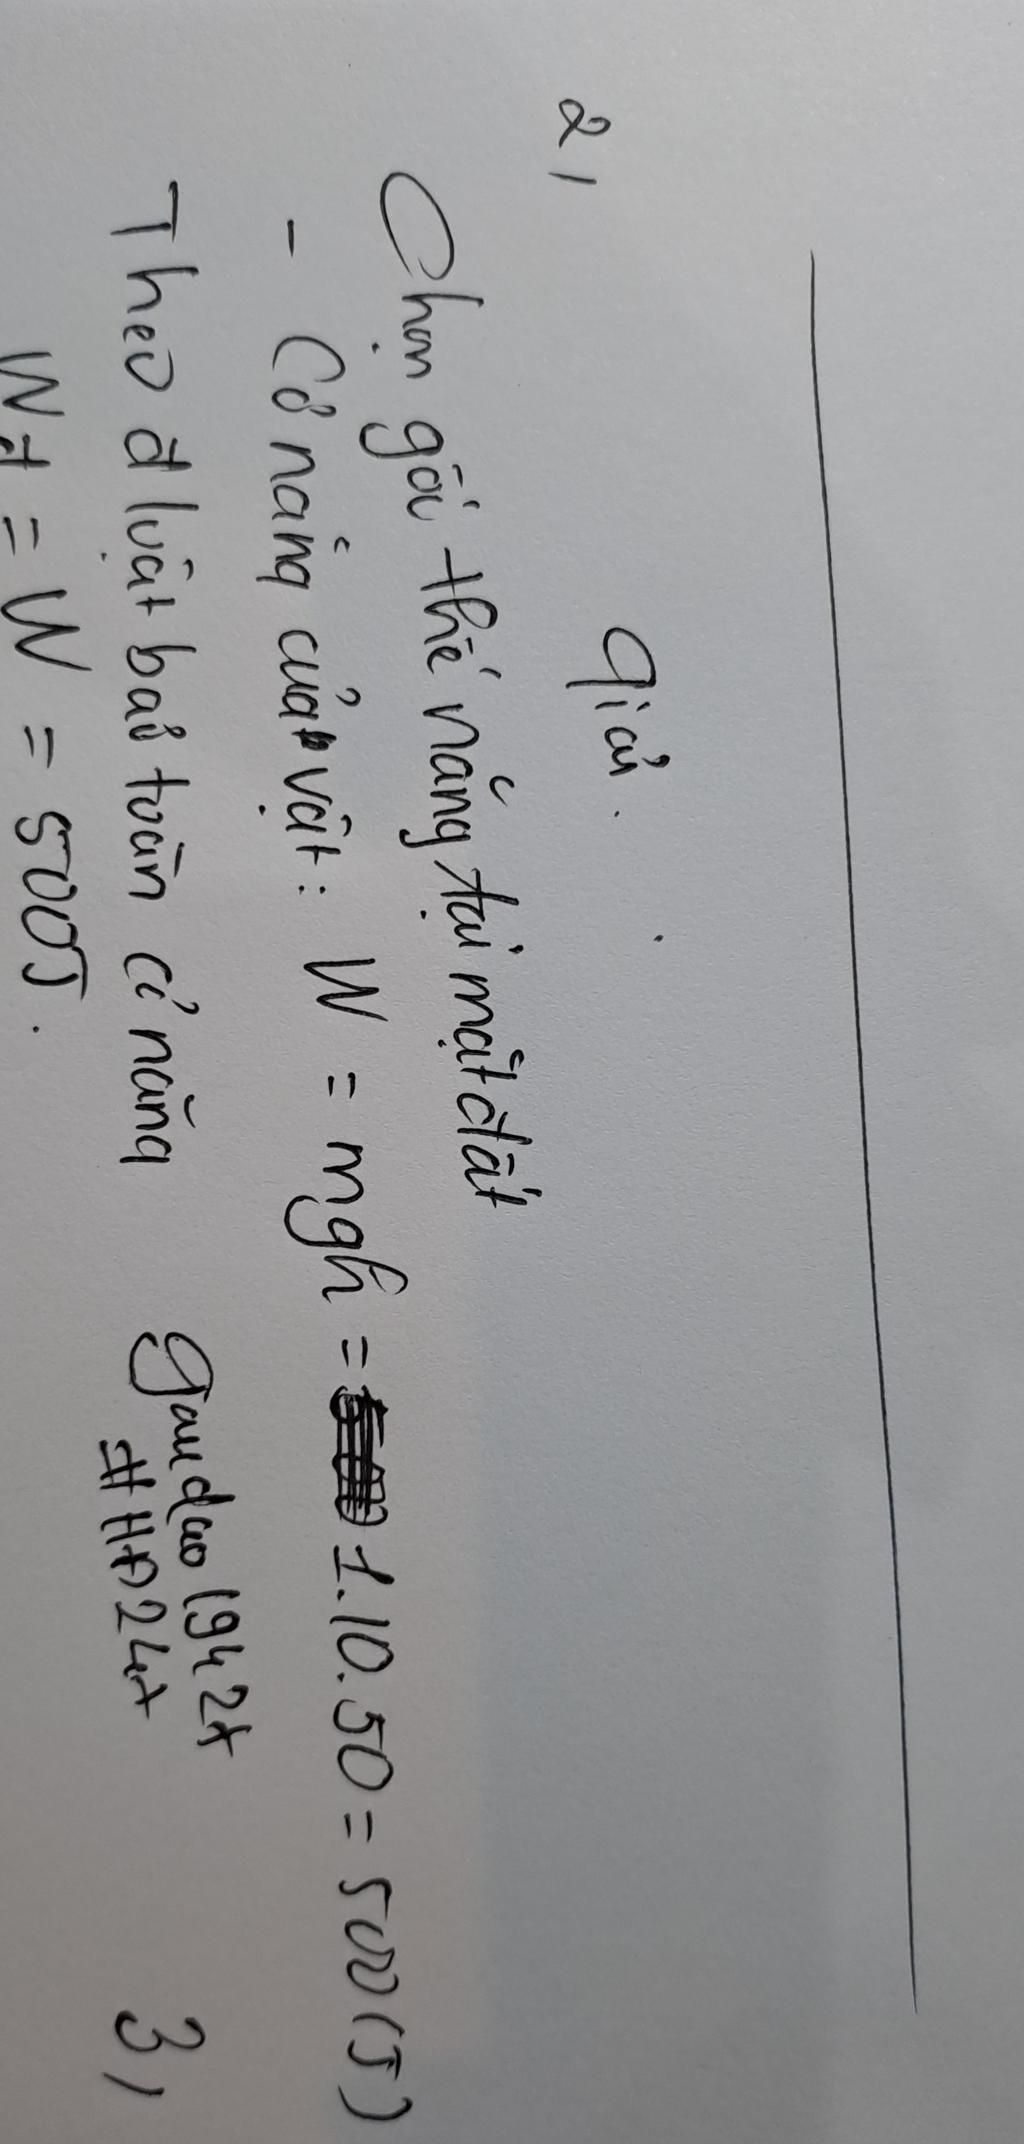 2,
Giải.
Chọn gốc thế năng tại mặt đất
- Cơ năng của vật: W = mgh = 1.10.50 = 500 (J)
Theo đ luật bảo toàn cơ năng
Wđ = W = 500J.
gaudao1942t
#HD24t
3,